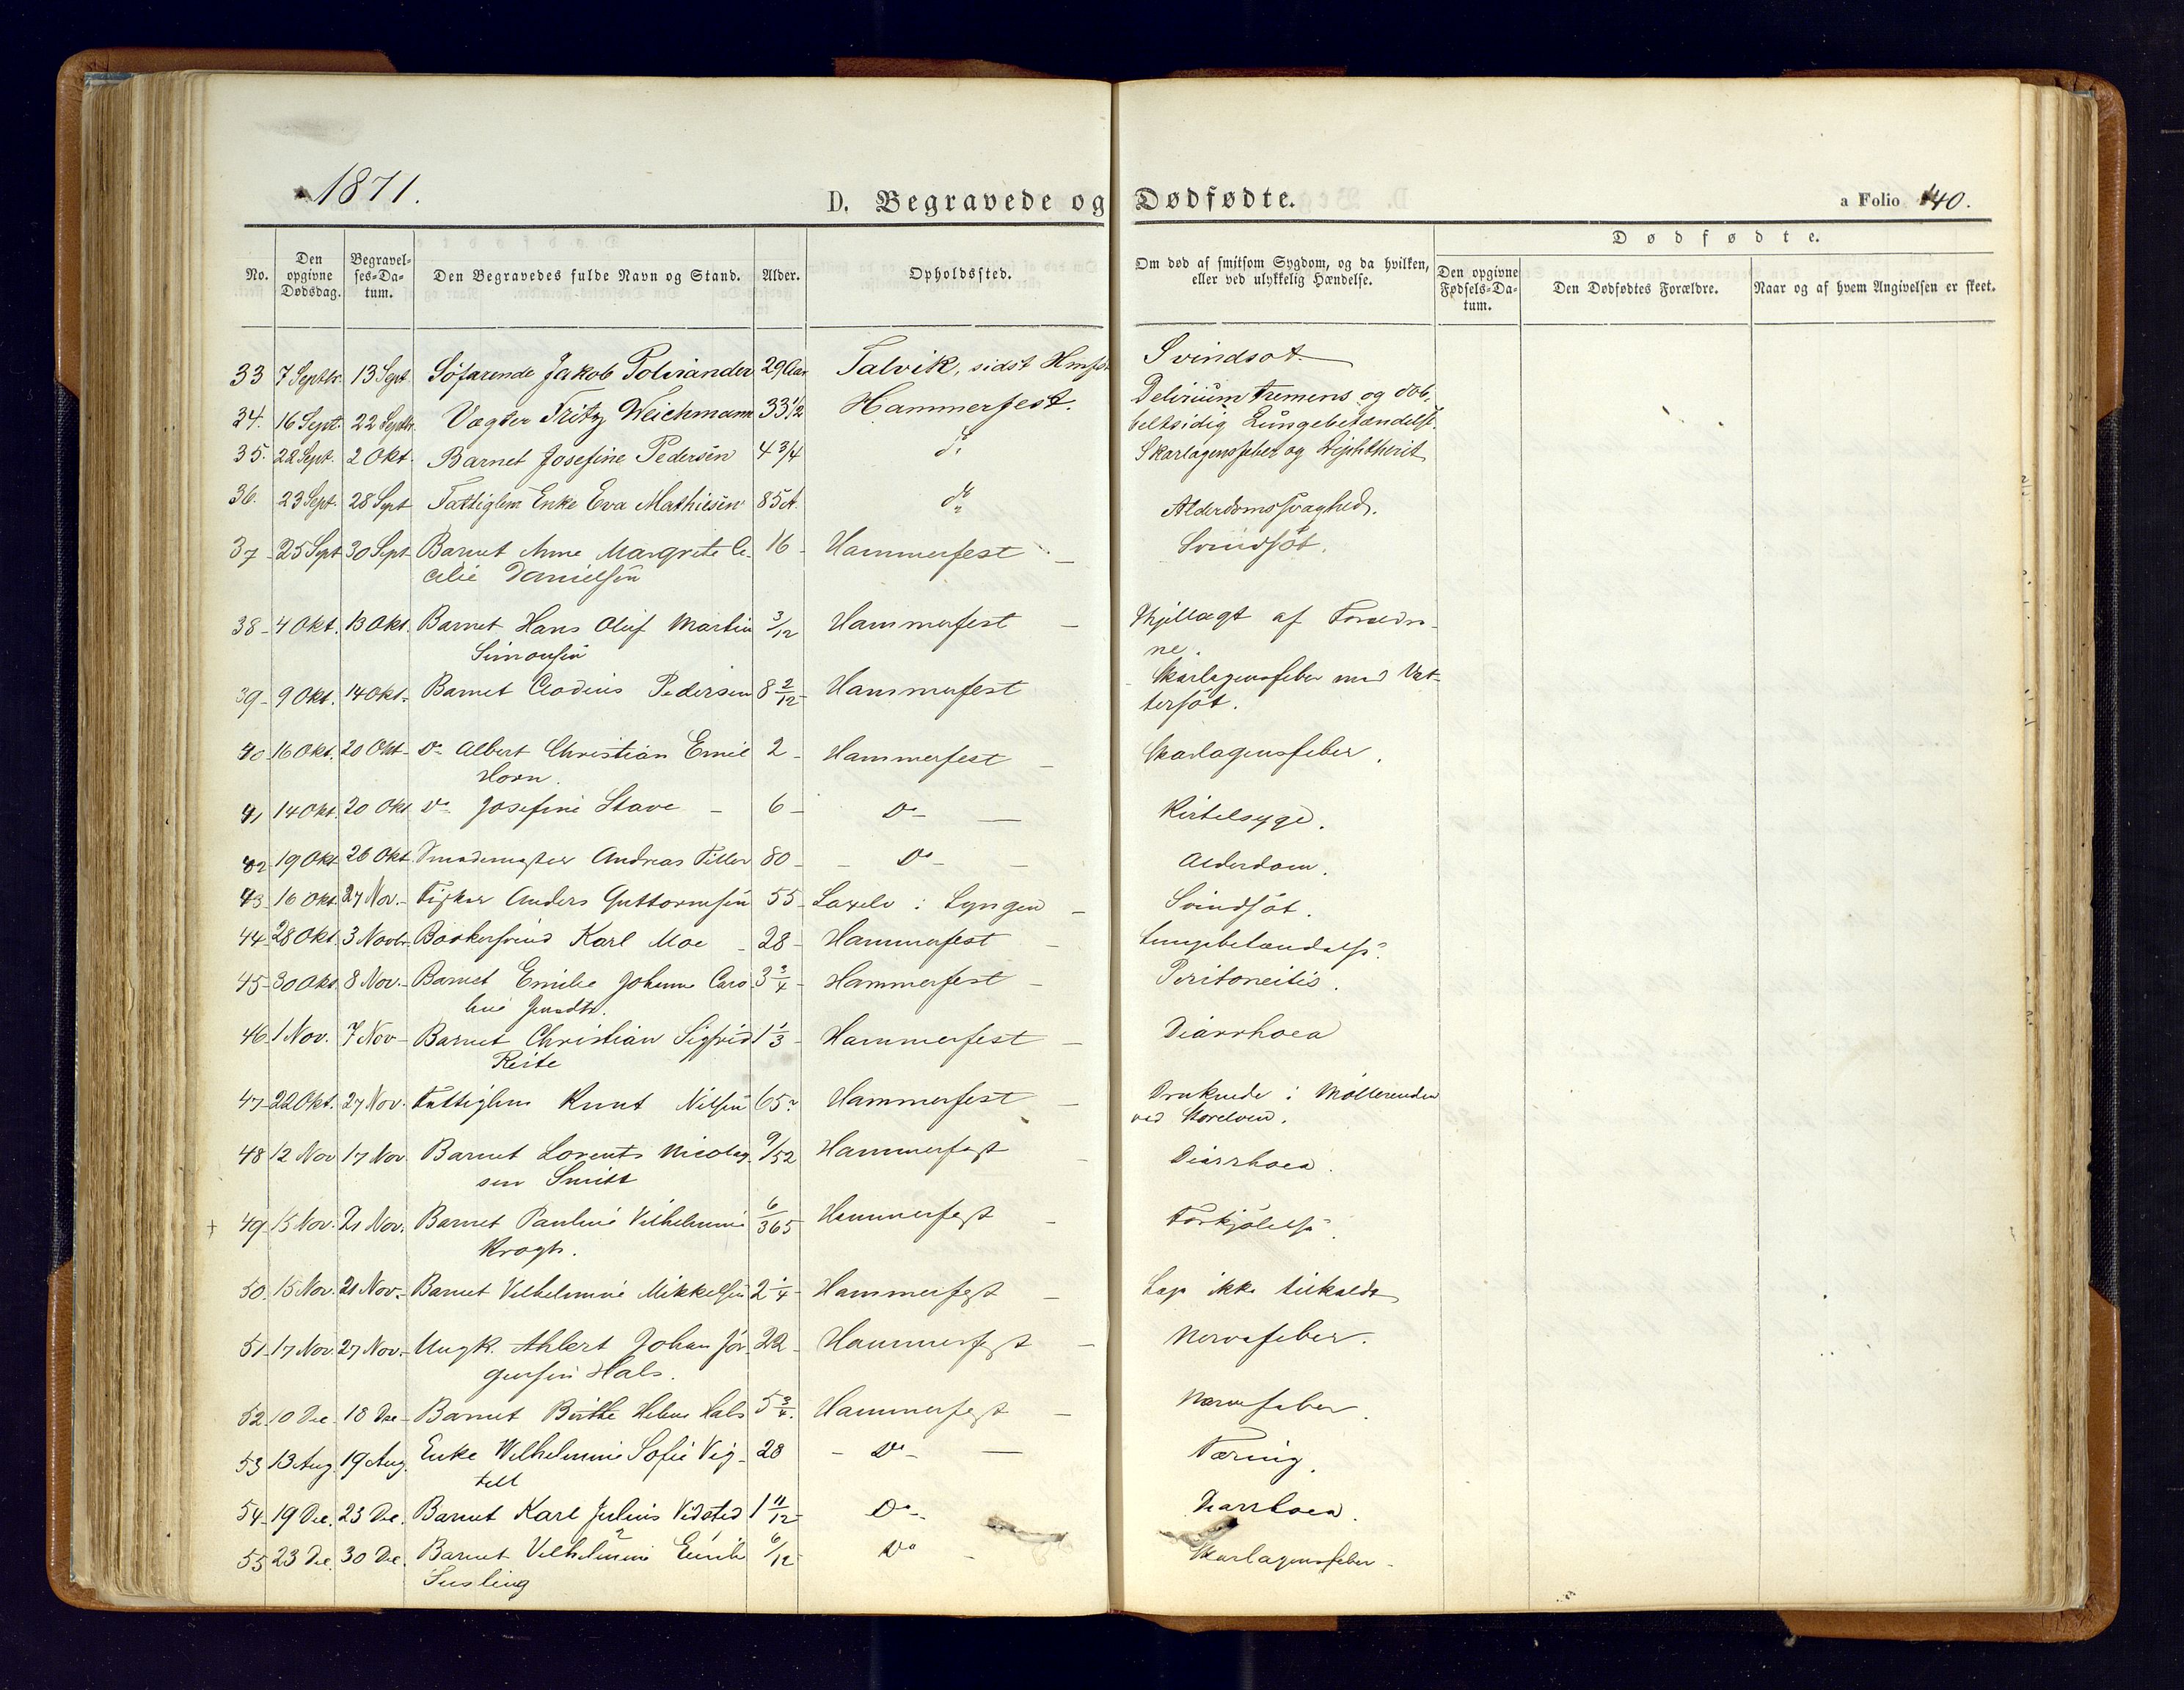 1871.
D. Begravede og Dødfødte.
a Folio 140.
No.
Den opgivne Dødsdag.
Begravelses-Datum.
Den Begravedes fulde Navn og Stand.
Alder.
Opholdssted.
Om død af smitsom Sygdom, og da hvilken, eller ved ulykkelig Hændelse.
Dødfødte.
Den opgivne Fødsels-Datum.
Den Dødfødtes Forældre.
Naar og af hvem Angivelsen er skeet.
33 7 Septbr. 13 Sept. Søfarende Jakob Polviander 29 Aar Talvik, sidst Hmfst Svindsot
34. 16 Sept. 22 Septbr. Vægter Fritz Weichmann 33 1/2 Hammerfest. Delirium tremens og dob,
beltsidig Lungebetændelse.
35. 22 Sept. 2 Okt. Barnet Josefine Pedersen 4 3/4 do Skarlagensfeber og Diphtherit
36. 23 Sept. 28 Sept Fattiglem Enke Eva Mathiesen 85 A. do Alderdomssvaghed.
37 25 Sept 30 Sept Barnet Anne Margrete Ce- 16 Hammerfest Svindsot.
cilie Danielsen
38 4 Okt. 13 Okt. Barnet Hans Oluf Martin 3/12 Hammerfest Ihjellagt af Forældre-
Simonsen ne.
39 9 Okt. 14 Okt. Barnet Clodius Pedersen 8 2/12 Hammerfest Skarlagensfeber med Vat-
tersot.
40 16 Okt. 20 Okt Do Albert Christian Emil 2 Hammerfest Skarlagensfeber.
Horn.
41 14 Okt. 20 Okt Do Josefine Stave 6 Do Kirtelsyge.
42 19 Okt. 26 Okt. Smedemester Andreas Tiller 80 Do Alderdom.
43 16 Okt. 27 Nov. Fisker Anders Guttormsen 55 Laxelv i Lyngen Svindsot.
44 28 Okt. 3 Novbr. Bødkersvend Karl Moe 28 Hammerfest Lungebetændelse.
45 30 Okt 8 Nov. Barnet Emilie Johanne Caro 3 3/4 Hammerfest Peritoneitis.
line
46 1 Nov. 7 Nov Barnet Christian Sigfrid 1 1/3 Hammerfest Diarrhoea
Reite
47 22 Okt. 27 Nov. Fattiglem Knut Nilsen 65? Hammerfest Druknede i Møllerenden
ved Storelven.
48 12 Nov 17 Nov. Barnet Lorents Nicolay- 9/52 Hammerfest Diarrhoea.
sen Smitt
+ 49 15 Nov. 21 Nov. Barnet Pauline Vilhelmine 6/365 Hammerfest Forkjølelse.
Krogh.
50 15 Nov. 21 Nov. Barnet Vilhelmine Mikkelsen 2 1/4 Hammerfest Læge ikke tilkaldt
51 17 Nov. 27 Nov. Ungk. Ahlert Johan Jør- 22 Hammerfest Nervefeber.
gensen Hals.
52 10 Dec 18 Dec Barnet Birthe Helene Hals 5 3/4 Hammerfest Nervefeber.
53 13 Aug 19 Aug. Enke Wilhelmine Sofie Vig- 28 Do Tæring.
tell
54 19 Dec. 23 Dec. Barnet Karl Julius Vidsted 1 11/12 Do Diarrhoea.
55 23 Dec. 30 Dec. Barnet Vilhelmine Emilie 6/12 Do Skarlagensfeber
Susling